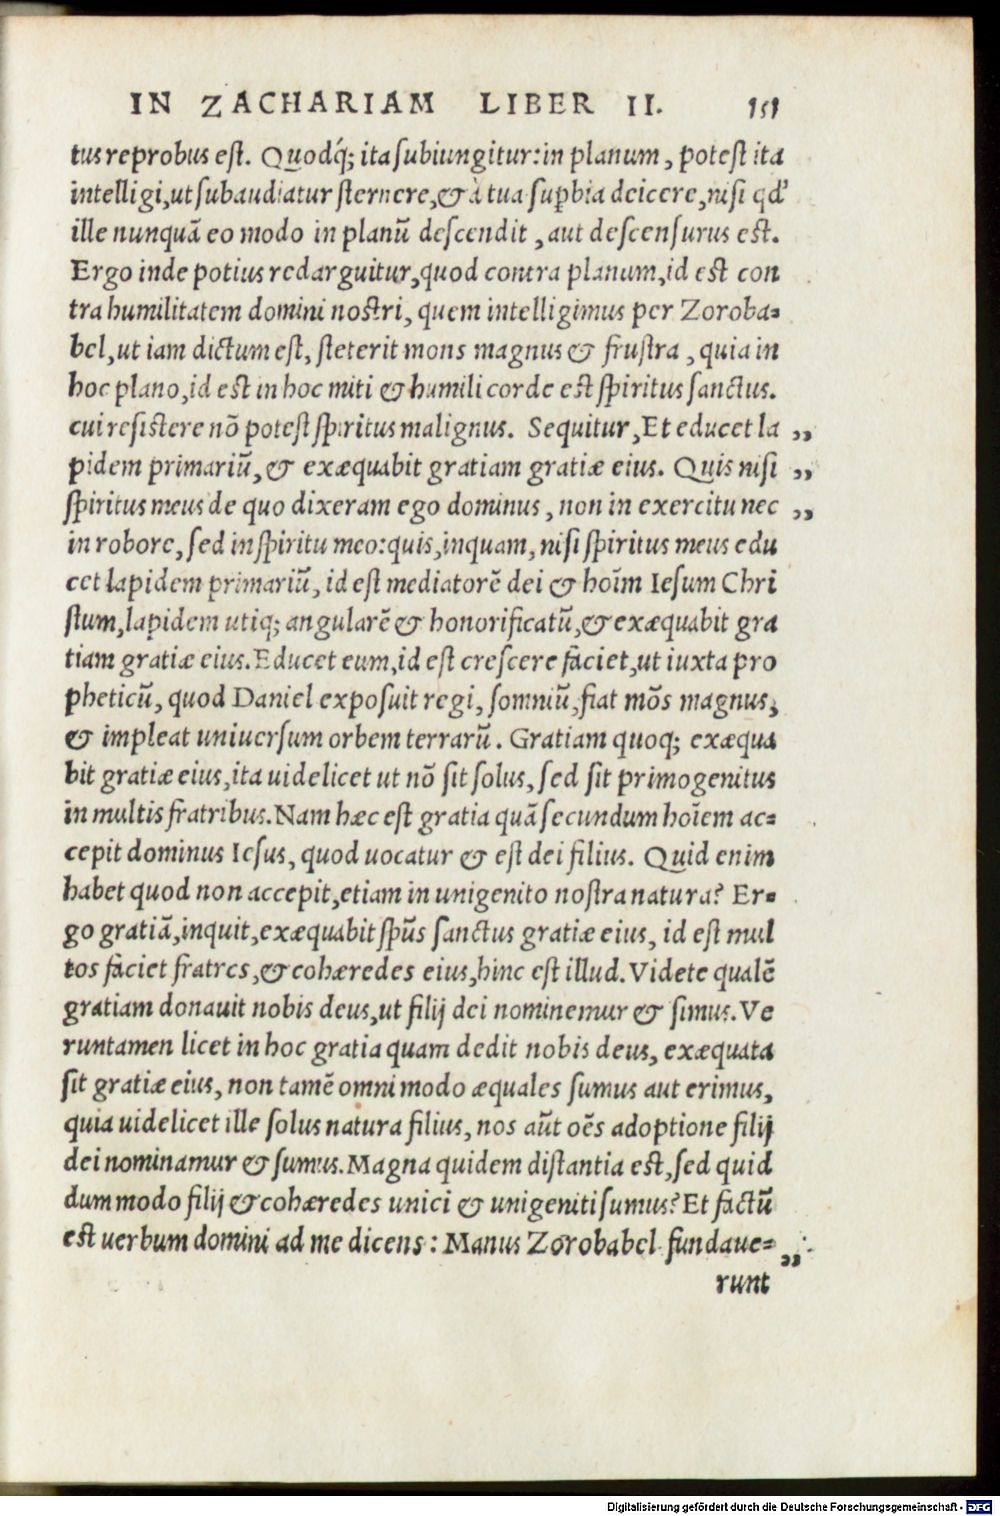 IN ZACHARIAM LIBER II. 151
tus reprobus est. Quodq́; ita subiungitur: in planum, potest ita
intelligi, ut subaudiatur sternere, & à tua supbia deicere, nisi qd'
ille nunquā eo modo in planū descendit, aut descensurus est.
Ergo inde potius redarguitur, quod contra planum, id est con
tra humilitatem domini nostri, quem intelligimus per Zoroba=
bel, ut iam dictum est, steterit mons magnus & frustra, quia in
hoc plano, id est in hoc miti & humili corde est spiritus sanctus.
cui resistere nō potest spiritus malignus. Sequitur, Et educet la „
pidem primariū, & exæquabit gratiam gratiæ eius. Quis nisi „
spiritus meus de quo dixeram ego dominus, non in exercitu nec „
in robore, sed in spiritu meo: quis, inquam, nisi spiritus meus edu
cet lapidem primariū, id est mediatorē dei & hoīm Iesum Chri
stum, lapidem utiq; angularē & honorificatū, & exæquabit gra
tiam gratiæ eius. Educet eum, id est crescere faciet, ut iuxta pro
pheticū, quod Daniel exposuit regi, somniū, fiat mōs magnus,
& impleat uniuersum orbem terrarū. Gratiam quoq; exæqua
bit gratiæ eius, ita uidelicet ut nō sit solus, sed sit primogenitus
in multis fratribus. Nam hæc est gratia quā secundum hoīem ac=
cepit dominus Iesus, quod uocatur & est dei filius. Quid enim
habet quod non accepit, etiam in unigenito nostra natura? Er=
go gratiā, inquit, exæquabit spūs sanctus gratiæ eius, id est mul
tos faciet fratres, & cohæredes eius, hinc est illud. Videte qualē
gratiam donauit nobis deus, ut filij dei nominemur & simus. Ve
runtamen licet in hoc gratia quam dedit nobis deus, exæquata
sit gratiæ eius, non tamē omni modo æquales sumus aut erimus,
quia uidelicet ille solus natura filius, nos aūt oēs adoptione filij
dei nominamur & sumus. Magna quidem distantia est, sed quid
dum modo filij & cohæredes unici & unigeniti sumus? Et factū
est uerbum domini ad me dicens: Manus Zorobabel fundaue= „
runt
Digitalisierung gefördert durch die Deutsche Forschungsgemeinschaft - DFG